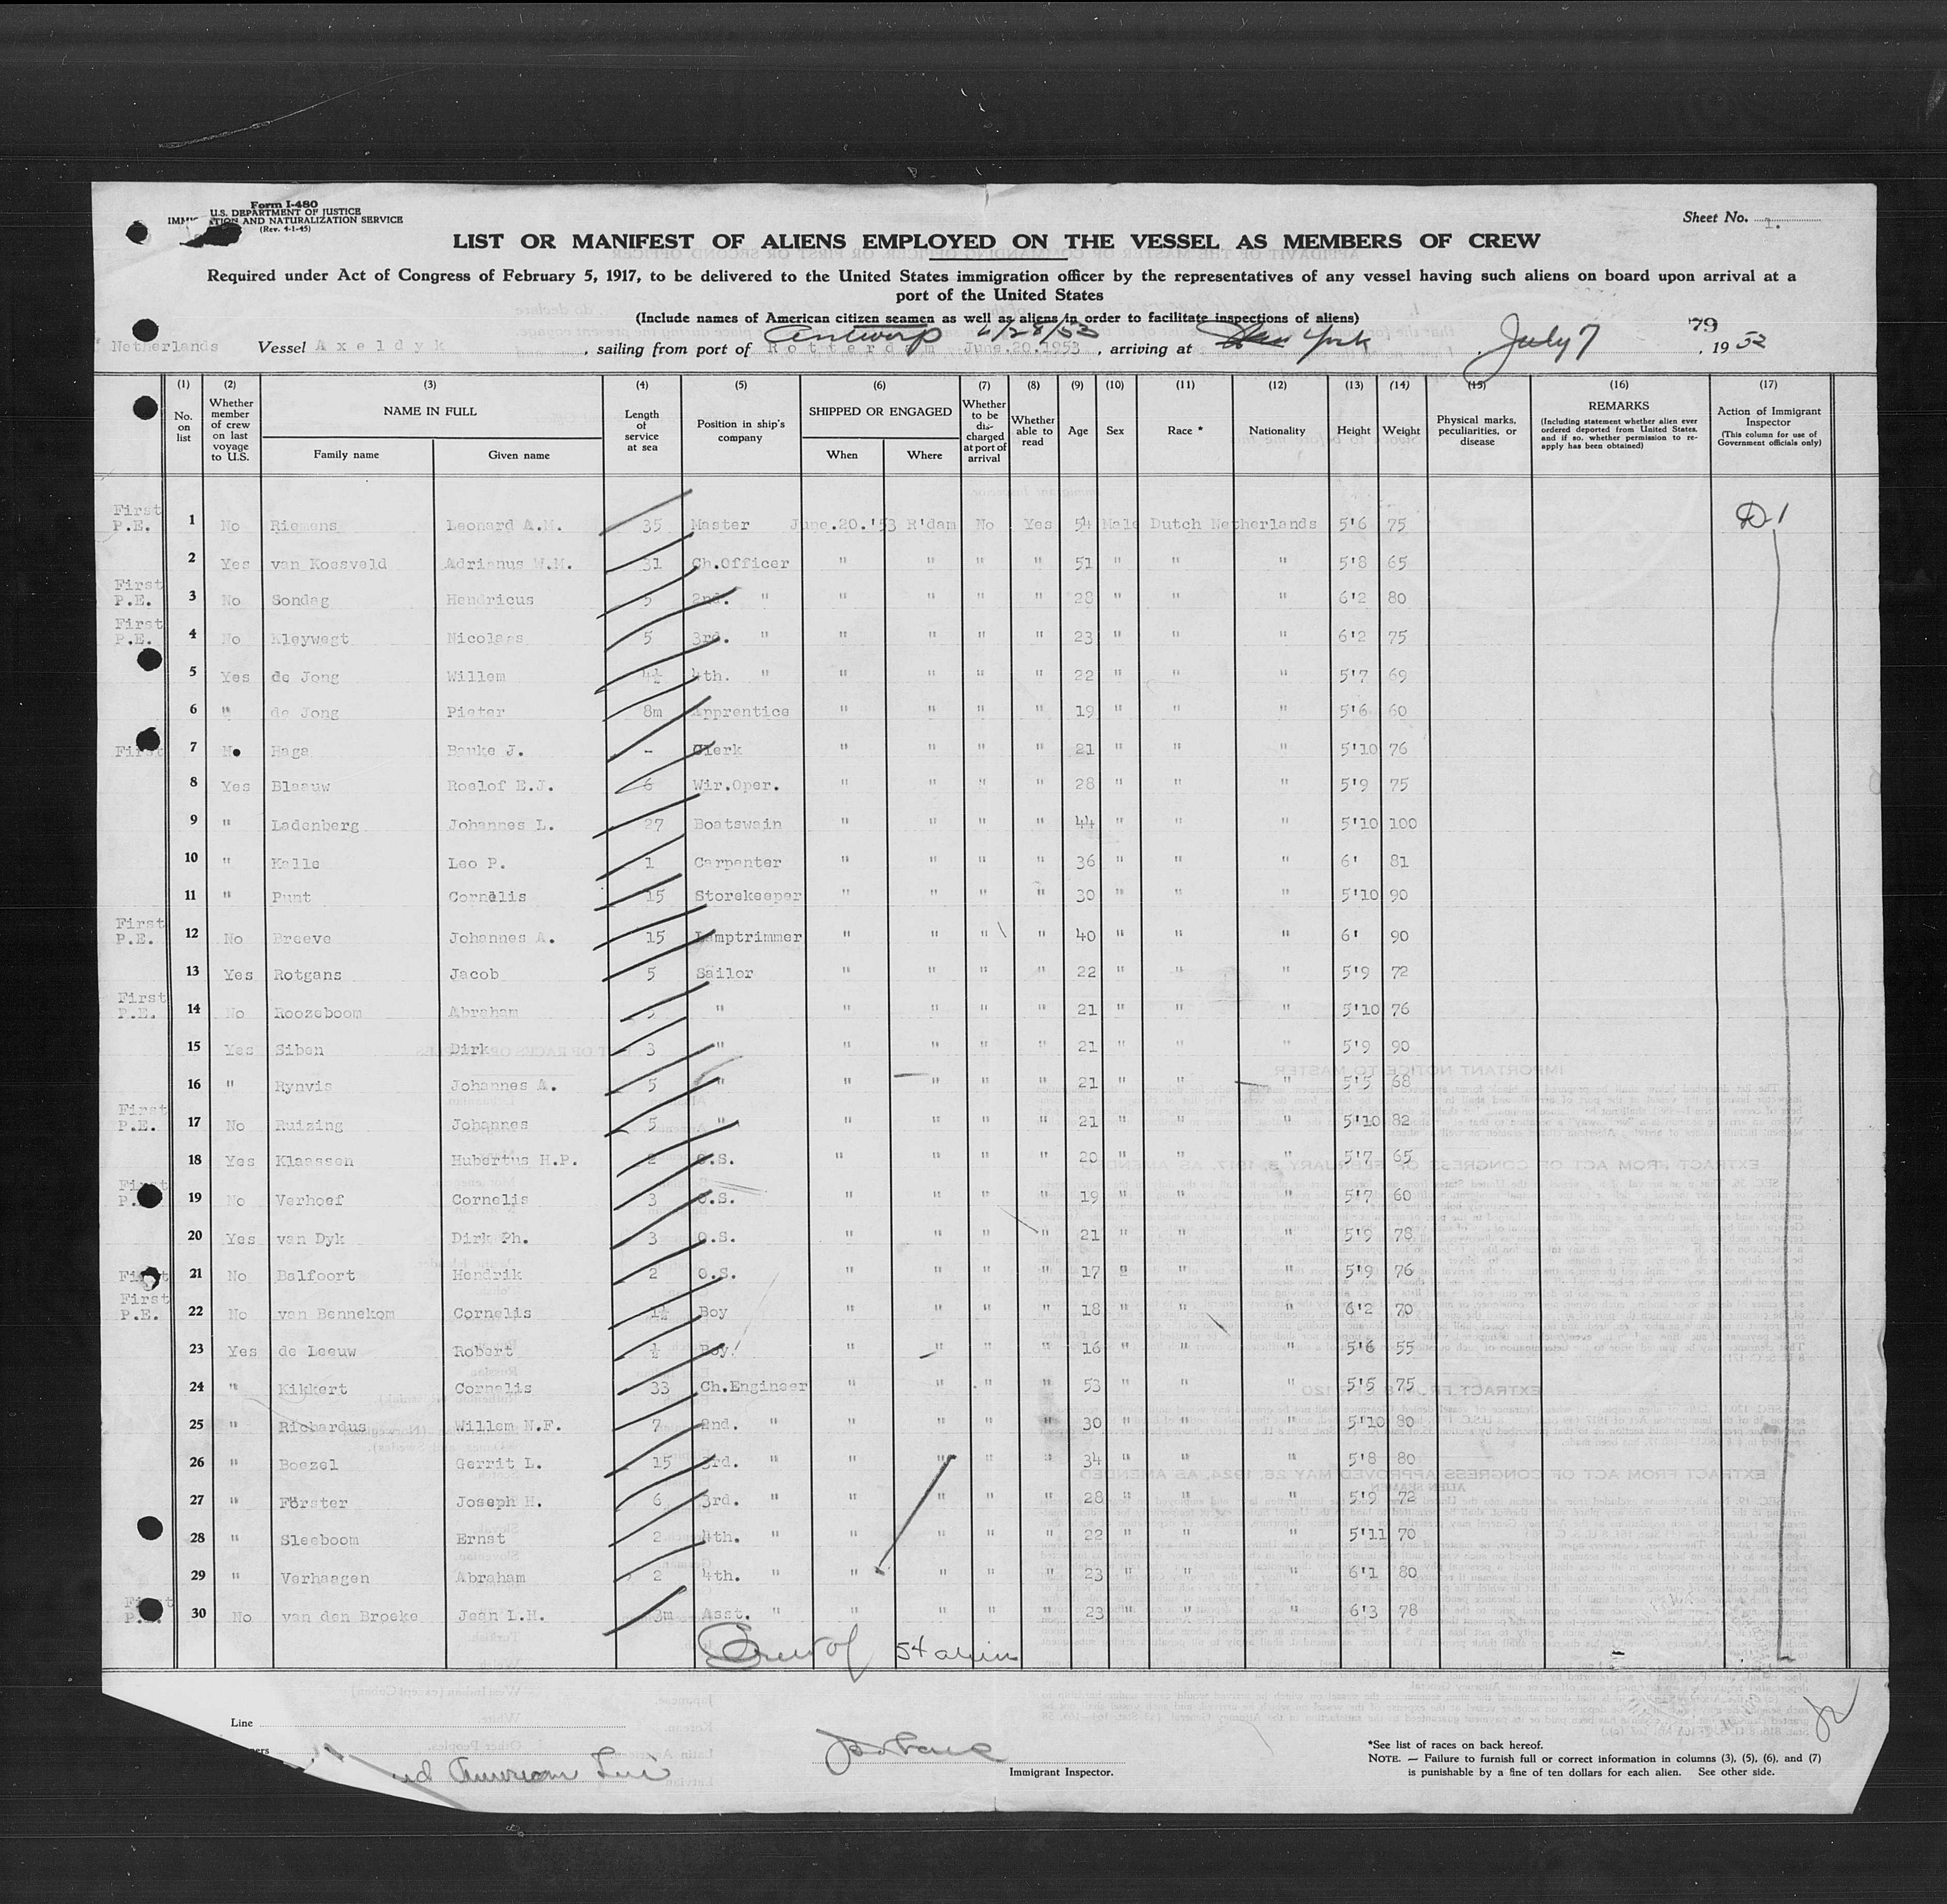 Form I-480
U.S. DEPARTMENT OF JUSTICE
IMMIGRATION AND NATURALIZATION SERVICE
(Rev. 4-1-45)
Sheet No. 1.
LIST OR MANIFEST OF ALIENS EMPLOYED ON THE VESSEL AS MEMBERS OF CREW
Required under Act of Congress of February 5, 1917, to be delivered to the United States immigration officer by the representatives of any vessel having such aliens on board upon arrival at a
port of the United States
(Include names of American citizen seamen as well as aliens in order to facilitate inspections of aliens)
Antwerp 6/28/53
79
Netherlands Vessel Axeldyk, sailing from port of Rotterdam June.20.1953, arriving at New York, July 7, 1953
(1) (2) (3) (4) (5) (6) (7) (8) (9) (10) (11) (12) (13) (14) (15) (16) (17)
No. on list
Whether member of crew on last voyage to U.S.
NAME IN FULL
Family name
Given name
Length of service at sea
Position in ship's company
SHIPPED OR ENGAGED
When
Where
Whether to be discharged at port of arrival
Whether able to read
Age
Sex
Race *
Nationality
Height
Weight
Physical marks, peculiarities, or disease
REMARKS
(Including statement whether alien ever ordered deported from United States, and if so, whether permission to reapply has been obtained)
Action of Immigrant Inspector
(This column for use of Government officials only)
First P.E. 1 No Riemens Leonard A.M. 35 Master June.20.'53 R'dam No Yes 54 Male Dutch Netherlands 5'6 75 D-1
2 Yes van Koesveld Adrianus W.M. 31 Ch.Officer " " " " 51 " " " 5'8 65
First P.E. 3 No Sondag Hendricus 5 2nd. " " " " " 28 " " " 6'2 80
First P.E. 4 No Kleywegt Nicolaas 5 3rd. " " " " " 23 " " " 6'2 75
5 Yes de Jong Willem 4½ 4th. " " " " " 22 " " " 5'7 69
6 " de Jong Pieter 8m Apprentice " " " " 19 " " " 5'6 60
First 7 No Haga Bauke J. - Clerk " " " " 21 " " " 5'10 76
8 Yes Blaauw Roelof E.J. 6 Wir.Oper. " " " " 28 " " " 5'9 75
9 " Ladenberg Johannes L. 27 Boatswain " " " " 44 " " " 5'10 100
10 " Kalle Leo P. 1 Carpenter " " " " 36 " " " 6' 81
11 " Punt Cornelis 15 Storekeeper " " " " 30 " " " 5'10 90
First P.E. 12 No Breeve Johannes A. 15 Lamptrimmer " " " " 40 " " " 6' 90
13 Yes Rotgans Jacob 5 Sailor " " " " 22 " " " 5'9 72
First P.E. 14 No Roozeboom Abraham 5 " " " " " 21 " " " 5'10 76
15 Yes Siben Dirk 3 " " " " " 21 " " " 5'9 90
16 " Rynvis Johannes A. 5 " " " " " 21 " " " 5'5 68
First P.E. 17 No Ruizing Johannes 5 " " " " " 21 " " " 5'10 82
18 Yes Klaassen Hubertus H.P. 2 O.S. " " " " 20 " " " 5'7 65
First P.E. 19 No Verhoef Cornelis 3 O.S. " " " " 19 " " " 5'7 60
20 Yes van Dyk Dirk Ph. 3 O.S. " " " " 21 " " " 5'9 78
First 21 No Balfoort Hendrik 2 O.S. " " " " 17 " " " 5'9 76
First P.E. 22 No van Bennekom Cornelis 1½ Boy " " " " 18 " " " 6'2 70
23 Yes de Leeuw Robert ½ Boy " " " " 16 " " " 5'6 55
24 " Kikkert Cornelis 33 Ch.Engineer " " " " 53 " " " 5'5 75
25 " Richardus Willem N.F. 7 2nd. " " " " " 30 " " " 5'10 80
26 " Boezel Gerrit L. 15 3rd. " " " " " 34 " " " 5'8 80
27 " Förster Joseph H. 6 3rd. " " " " " 28 " " " 5'9 72
28 " Sleeboom Ernst 2 4th. " " " " " 22 " " " 5'11 70
29 " Verhaagen Abraham 2 4th. " " " " " 23 " " " 6'1 80
First P.E. 30 No van den Broeke Jean L.H. 3m Asst. " " " " " 23 " " " 6'3 78
Crew of 54 aliens
Line
American Line
Immigrant Inspector.
*See list of races on back hereof.
NOTE. — Failure to furnish full or correct information in columns (3), (5), (6), and (7)
is punishable by a fine of ten dollars for each alien. See other side.